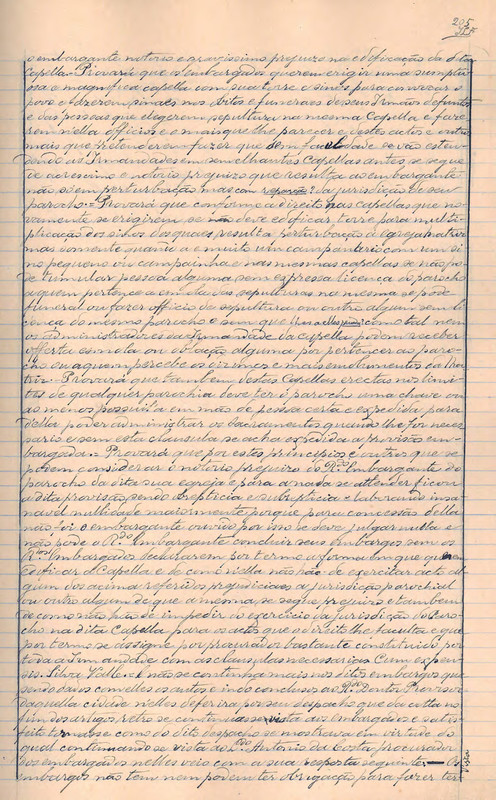 205
o embargante notorio e gravissimo prejuizo na edificação da dita
Capella = Provará que os embargados querem erigir uma sumptu
osa e magnifica capella com sua torre e sinos para convocar o
povo e fazerem sinaes nos obitos e funeraes de seus Irmãos defuntos
e das pessoas que elegerem sepultura na mesma Capella e faze
rem n'ella officios e o mais que lhe parecer e destes actos e outros
mais que pretenderem fazer que sem faculdade se vão esten
dendo as Irmandades em semelhantes Capellas antes, se segue
de accrescimo e notorio prejuizo que resulta ao embargante
não só em perturbação mas com da jurisdição de seu
parocho = Provará que conforme a direito nas capellas que no
vamente se erigirem se não deve edificar torre para multi
plicação dos sinos dos quaes resulta perturbação á egreja matriz
mas somente quando a é muito um campanario com um si
no pequeno ou campainha e nas mesmas capellas se não po
de tumular pessoa alguma sem expressa licença do parocho
a quem pertence a das sepulturas na mesma se pode
funeral ou fazer officio de sepultura ou outro algum sem li
cença do mesmo parocho e sem que como tal nem
os administradores da Irmandade da capella podem receber
offerta esmola ou doação alguma por pertencer ao paro
cho ou a quem percebe os dizimos e mais emolumentos da Ma
triz = Provará que tambem destas Capellas erectas nos limi
tes de qualquer parochia deve ter o parocho uma chave ou
ao menos possuil-a em mão de pessoa certa e expedida para
d'ella poder administrar os Sacramentos quando lhe for neces
sario e sem esta clausula se acha expedida a provisão em
bargada = Provará que por estes principios e outros que se
podem considerar o notorio prejuizo do Rdo Embargante do
parocho da dita sua egreja e para a nada se attender ficou
a dita provisão sendo obrepticia e subrepticia e laborando insa
navel nullidade maiormente porque para concessão della
não foi o embargante ouvido por isso se deve julgar nulla e
não pode o Rdo Embargante concluir seus embargos sem os
Embargados declararem por termo a forma em que querem
edificar a Capella e se com n'ella não hão de exercitar acto al
gum dos acima referidos prejudiciaes á jurisdição parochial
ou outro algum de que a mesma se segue prejuizo e tambem
de como não hão de impedir o exercicio da jurisdição do Paro
cho na dita Capella para os actos que o direito lhe faculta e que
por termo se assigne por procurador bastante constituido por
toda a Irmandade com as clausulas necessarias Cum expen
sis. Silva Valle = E não se continha mais nos ditos embargos que
sendo dados com elles os autos e indo conclusos ao Rdo Doutor Provisor
daquella cidade nelles deferira por seu despacho que da cota no
fim dos artigos retro se continuasse vista aos embargados e satis
feito tornasse como do dito despacho se mostrava em virtude do
qual continuando se vista ao Antonio da Costa procurador
dos embargados nelles veio com a sua resposta seguinte — Os
embargos não tem nem podem ter obrigação para fazer ter